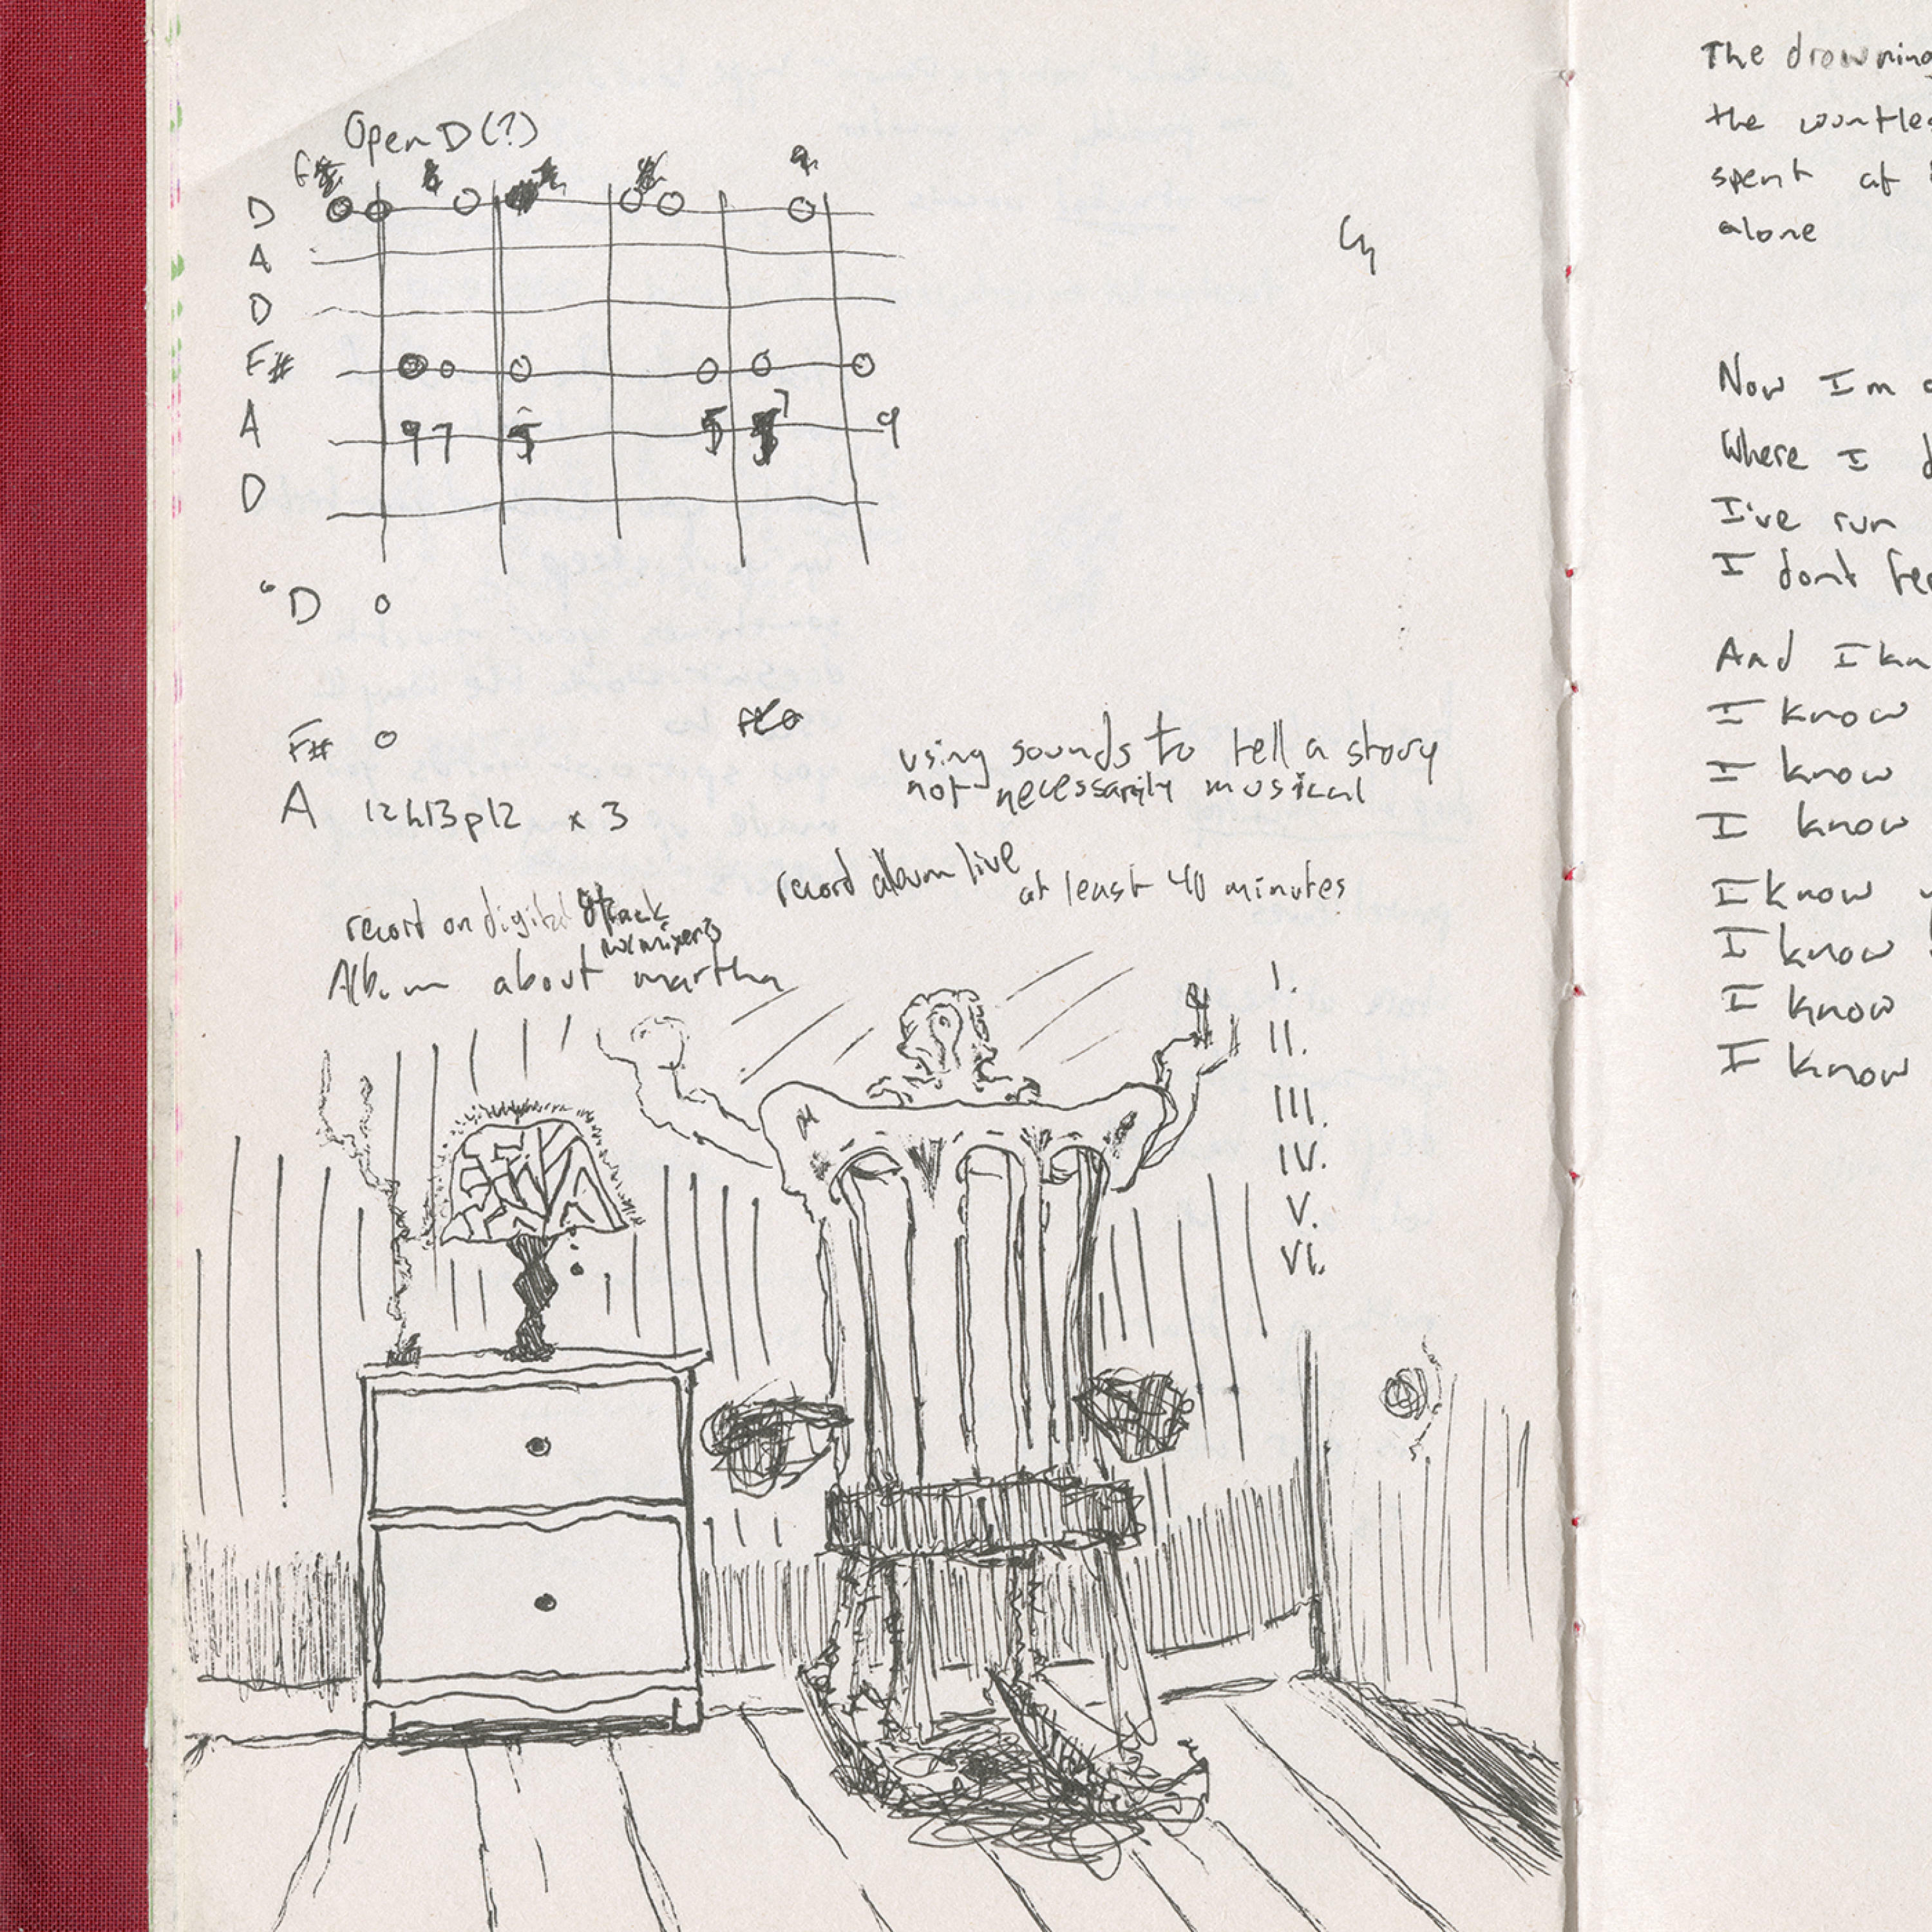 Open D (?)
D
A
D
F#
A 9 7 5 5 7 9
D
D o
F# o
A 12h13p12 x 3
using sounds to tell a story
not necessarily musical
record album live
at least 40 minutes
record on digital 8track
Album about martha
I.
II.
III.
IV.
V.
VI.
The drowning
the
spent at
alone
Now Im
Where I
I've run
I dont
And I
I know
I know
I know
I know
I know
I know
I know